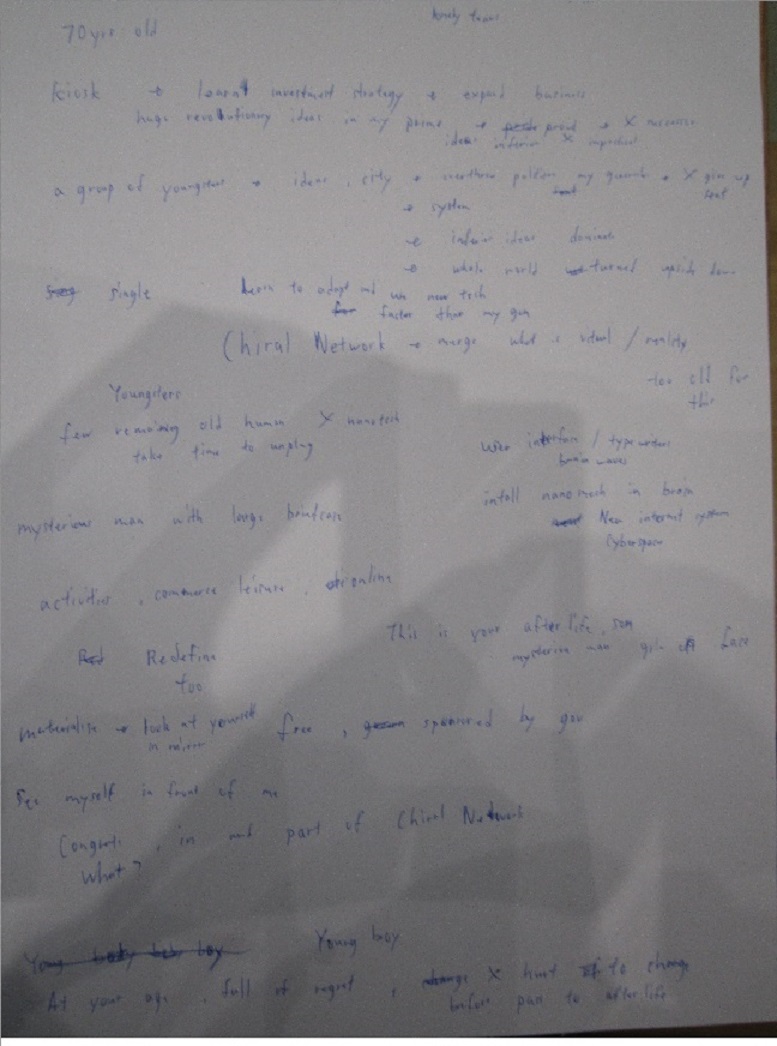 70 yrs old
lonely
kiosk → learnt investment strategy → expand business
huge revolutionary ideas in my prime → proud → X successor
ideas inferior X
a group of youngsters → ideas, city → my → X give up
→ system
→ inferior ideas dominate
→ whole world turned upside down
single learn to adapt and new tech
faster than my gen
Chiral Network → merge what is virtual / reality
too old for
this
Youngsters
few remaining old human X nanotech
take time to unplug
user interface / typewriters
brain waves
install in brain
New internet system
Cyberspace
mysterious man with large briefcase
activities, commerce leisure, online
This is your afterlife, son
mysterious man face
Redefine
too
materialise → look at yourself
in mirror
free, sponsored by gov
See myself in front of me
Congrats, part of Chiral Network
What?
Young boy
At your age, full of regret, X hurt to change
before pass to afterlife